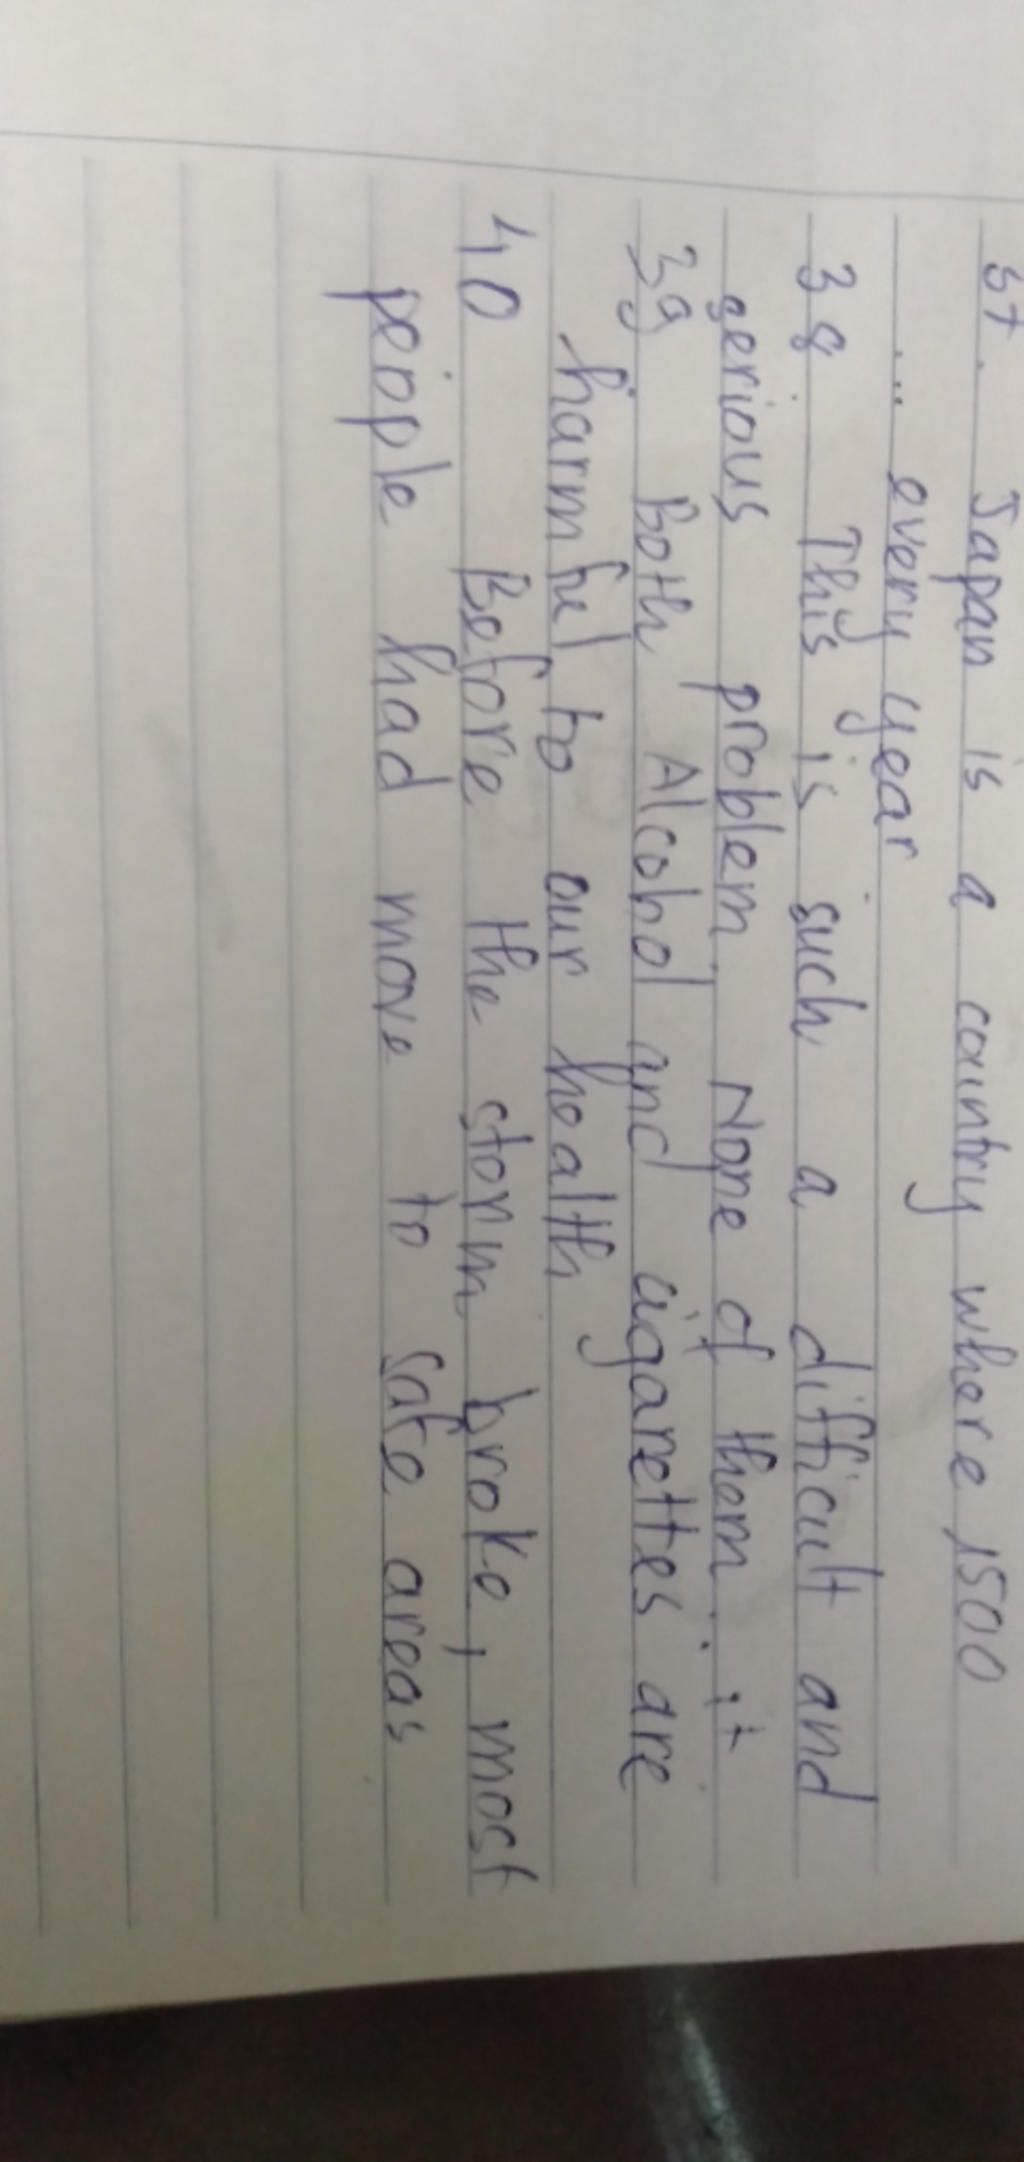 37. Japan is a country where 1500
... every year
38 This is such a difficult and
serious problem. None of them .. it
39 Both Alcohol and cigarettes are
harmful to our health
40 Before the storm broke, most
people had move to safe areas